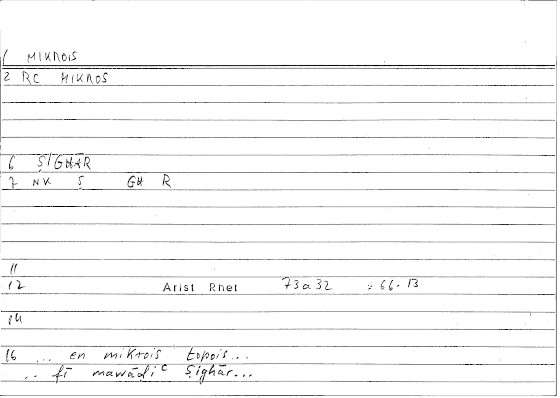 1 MIKROIS
2 RC MIKROS
6 ṢIGHĀR
7 NK Ṣ GH R
11
12 Arist Rhet 73a32 : 66.13
14
16 ... en mikrois topois...
.. fī mawāḍiᶜ ṣighār...